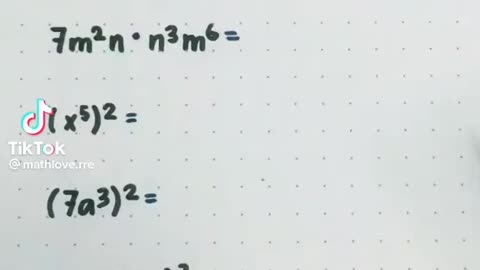 7m²n · n³m⁶ =
(x⁵)² =
TikTok
@mathlove.rre
(7a³)² =